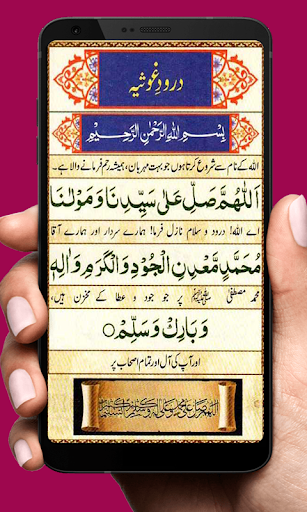 درود غوثیہ
بِسْمِ اللهِ الرَّحْمٰنِ الرَّحِيْمِ
اللہ کے نام سے شروع کرتا ہوں جو بہت مہربان، ہمیشہ رحم فرمانے والا ہے۔
اَللّٰهُمَّ صَلِّ عَلٰى سَيِّدِنَا وَمَوْلٰنَا
اے اللہ! درود و سلام نازل فرما! ہمارے سردار اور ہمارے آقا
مُحَمَّدٍ مَّعْدِنِ الْجُوْدِ وَالْكَرَمِ وَاٰلِهٖ
محمد مصطفیٰ ﷺ پر جو جود و عطا کے مخزن ہیں،
وَبَارِكْ وَسَلِّمْ ○
اور آپ کی آل اور تمام اصحاب پر